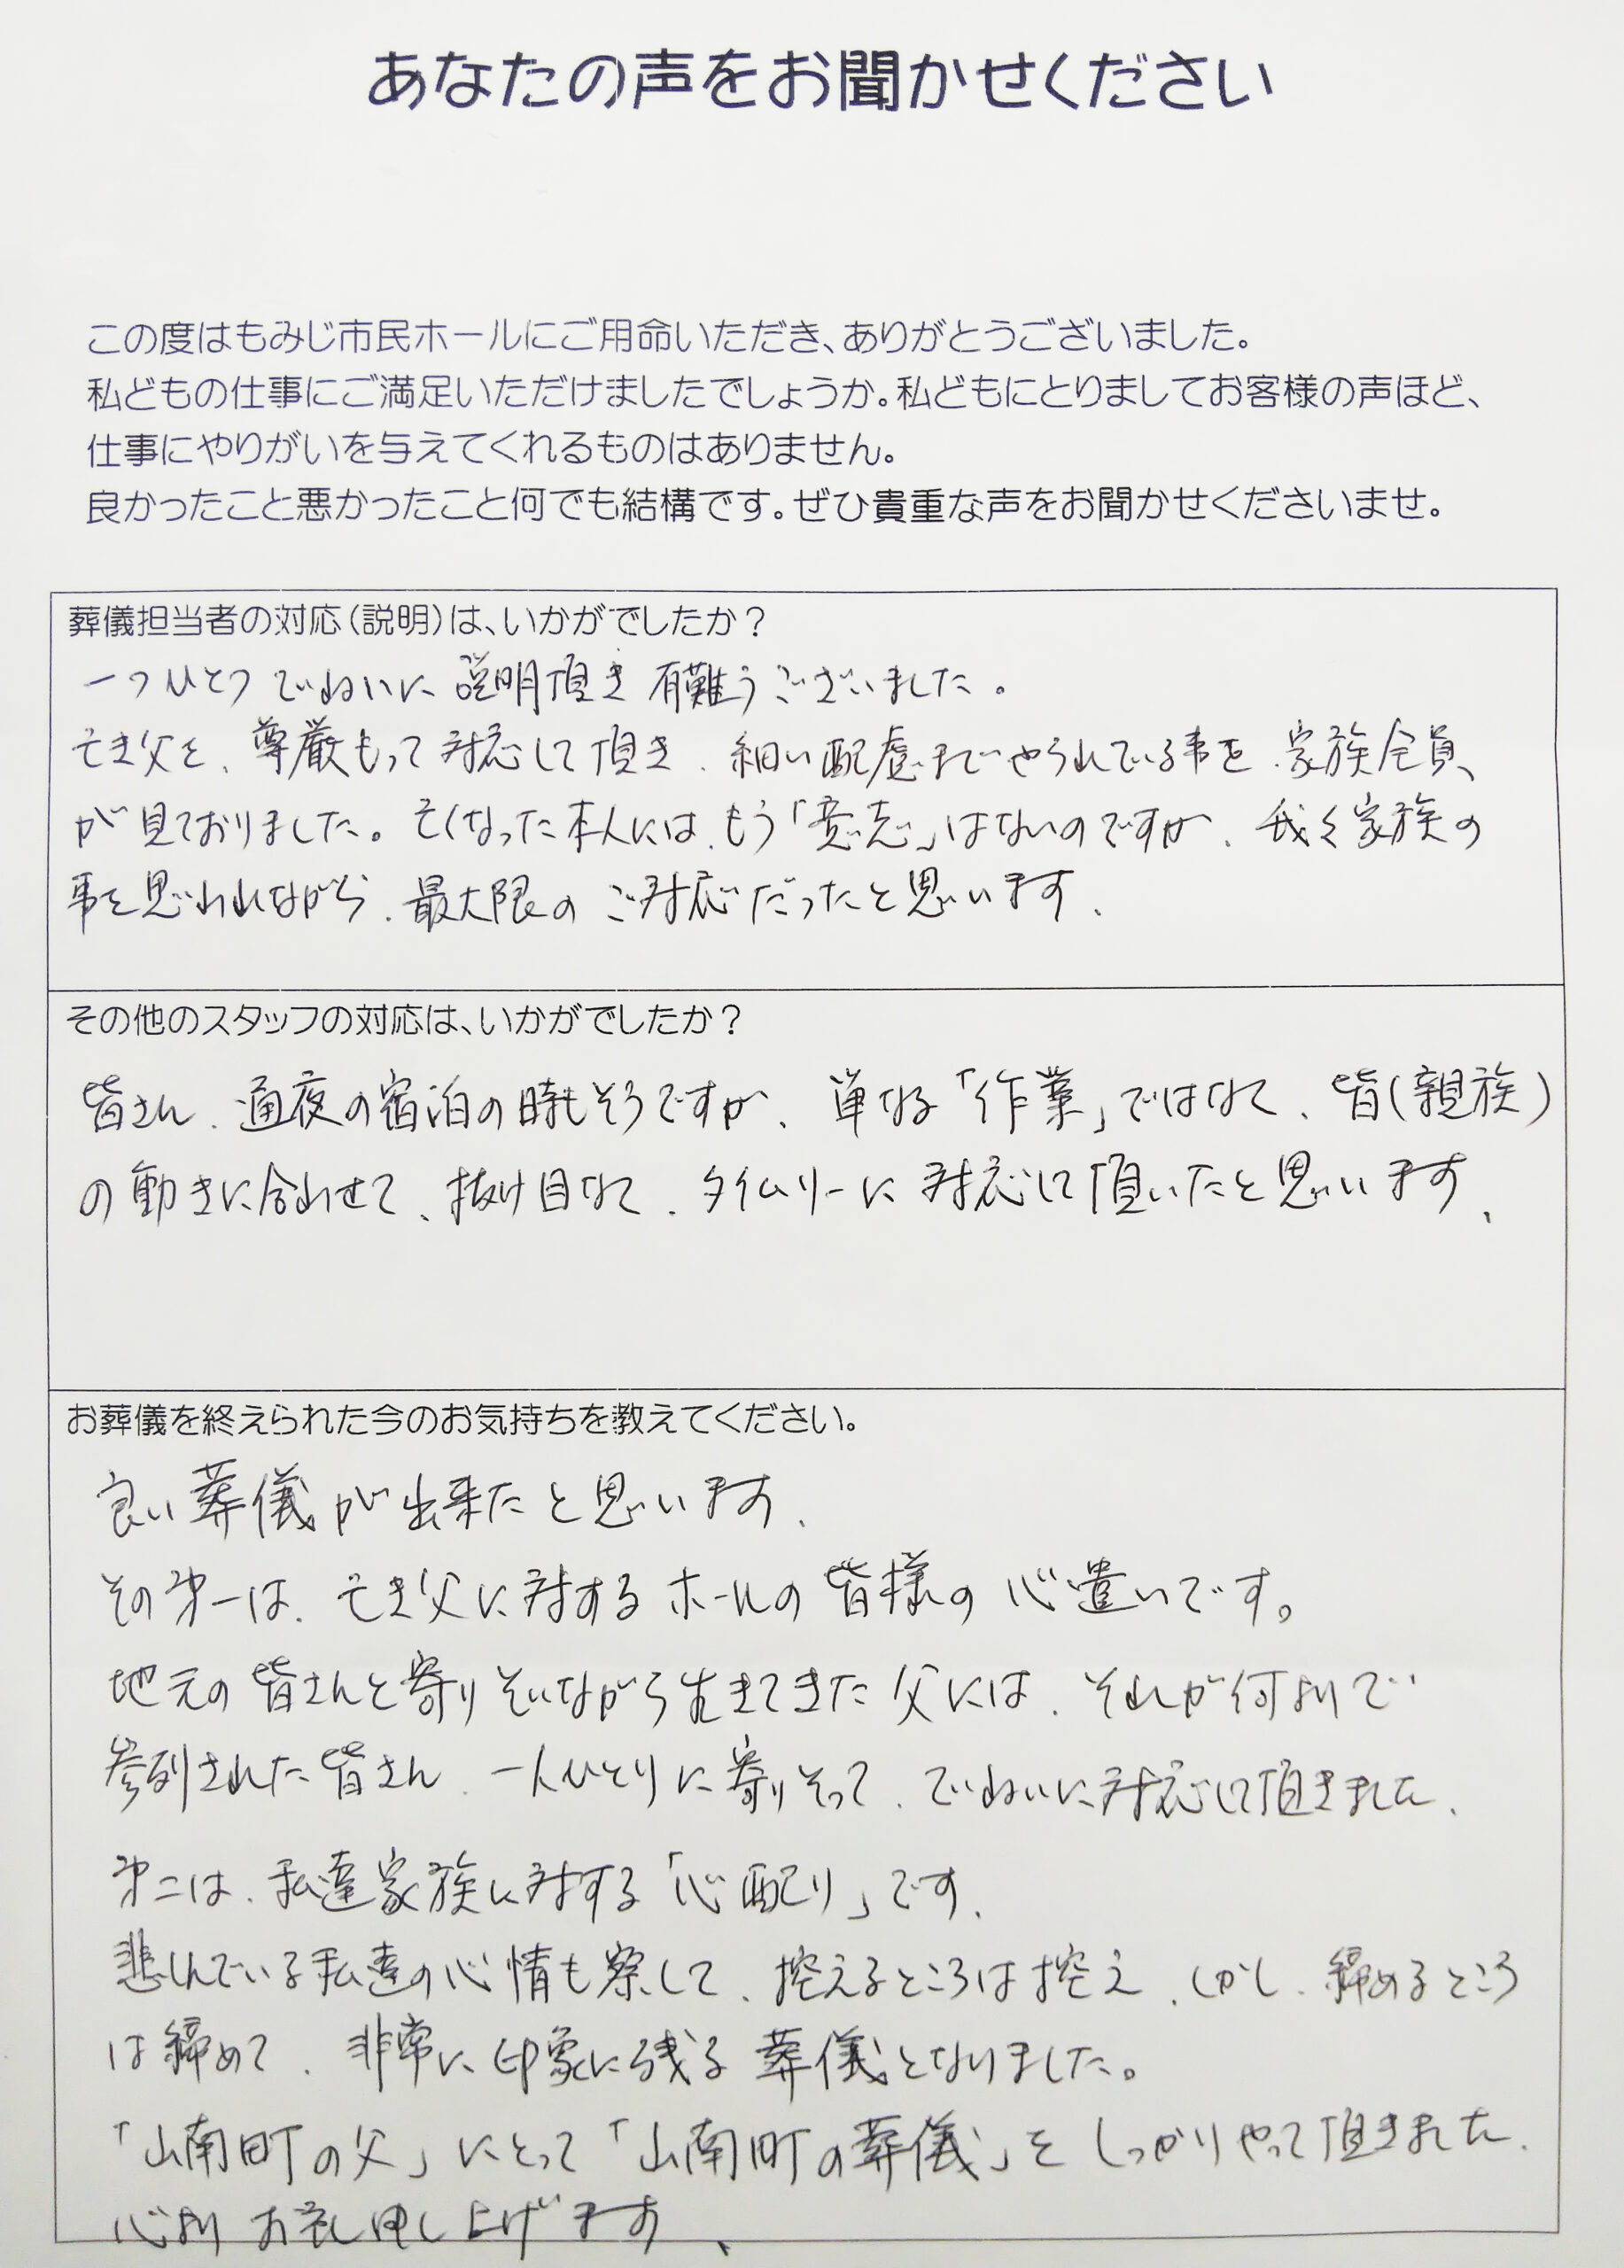 あなたの声をお聞かせください
この度はもみじ市民ホールにご用命いただき、ありがとうございました。
私どもの仕事にご満足いただけましたでしょうか。私どもにとりましてお客様の声ほど、
仕事にやりがいを与えてくれるものはありません。
良かったこと悪かったこと何でも結構です。ぜひ貴重な声をお聞かせくださいませ。
葬儀担当者の対応(説明)は、いかがでしたか？
一つひとつていねいに説明頂き有難うございました。
亡き父を、尊厳もって対応して頂き、細い配慮までやられている事を、家族全員、
が見ておりました。亡くなった本人には、もう「意志」はないのですが、我々家族の
事を思われながら、最大限のご対応だったと思います、
その他のスタッフの対応は、いかがでしたか？
皆さん、通夜の宿泊の時もそうですが、単なる「作業」ではなく、皆(親族)
の動きに合わせて、抜け目なく、タイムリーに対応して頂いたと思います、
お葬儀を終えられた今のお気持ちを教えてください。
良い葬儀が出来たと思います、
その第一は、亡き父に対するホールの皆様の心遣いです。
地元の皆さんと寄りそいながら生きてきた父には、それが何よりで
参列された皆さん、一人ひとりに寄りそって、ていねいに対応して頂きました、
第二は、私達家族に対する「心配り」です、
悲しんでいる私達の心情も察して、控えるところは控え、しかし、締めるところ
は締めて、非常に印象に残る葬儀となりました。
「山南町の父」にとって「山南町の葬儀」をしっかりやって頂きました、
心よりお礼申し上げます、